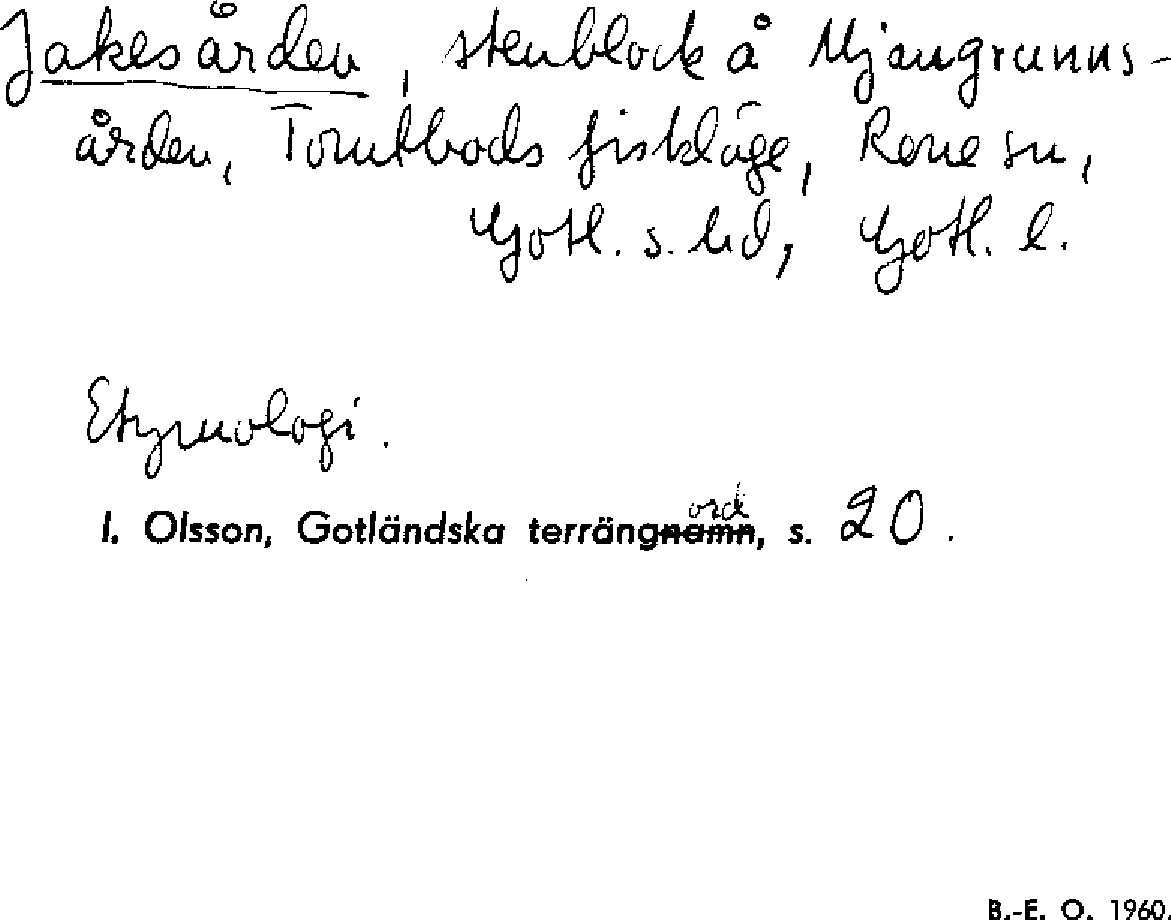 Jakesården, stenblock å Mjaugrunns-
ården, Tomtbods fiskläge, Rone sn,
Gotl. s. hd, Gotl. l.
Etymologi.
I. Olsson, Gotländska terrängord, s. 20.
B.-E. O. 1960.